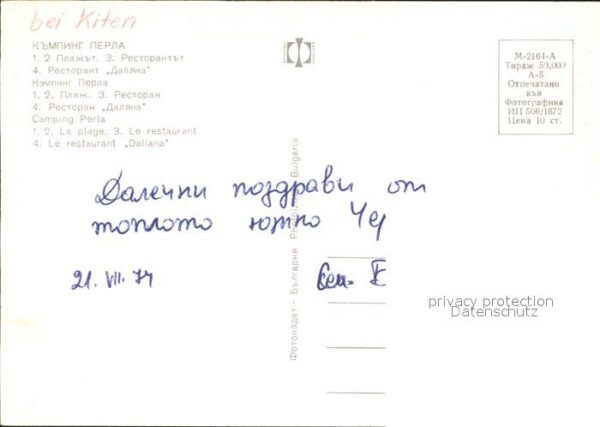 bei Kiten
КЪМПИНГ ПЕРЛА
1. 2 Плажът. 3. Ресторантът
4. Ресторант „Даляна"
Кэмпинг Перла
1. 2. Пляж. 3. Ресторан
4. Ресторан „Даляна"
Camping Perla
1. 2. La plage. 3. Le restaurant
4. Le restaurant „Daliana"
М-2164-А
Тираж 50,000
А-5
Отпечатано
във
Фотографика
ИП 506/1672
Цена 10 ст.
Далечни поздрави от
топлото южно Че
21. VII. 74
Сем.
Фотоиздат - България
Bulgaria
privacy protection
Datenschutz